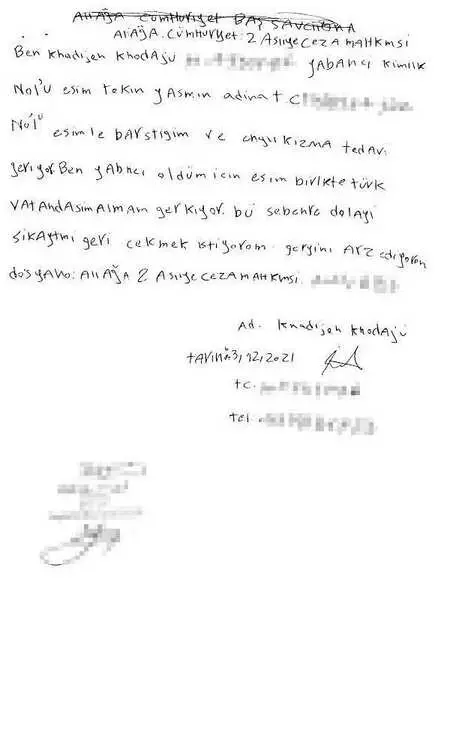 Aliağa Cumhuriyet Baş savcılığına
Aliağa.Cumhuriyet: 2 Asliye Ceza mahkmsi
Ben Khadijeh Khodaju yabancı kimlik
No'l'u eşim tekin yasmin adina tc
No'l'u eşimle barstigim ve kızıma tedavi
geriyor Ben yabncı oldüm icin esim birlikte türk
vatandasim Almam gerkiyor. bü sebenre dolayi
Sikaytmi geri cekmek istiyorom. geryini Arz ediyorom
dosya no: Aliağa 2 Asliye Ceza mahkmsi
Ad. Khadijeh Khodaju
tarih: 3,12,2021
tc.
tel